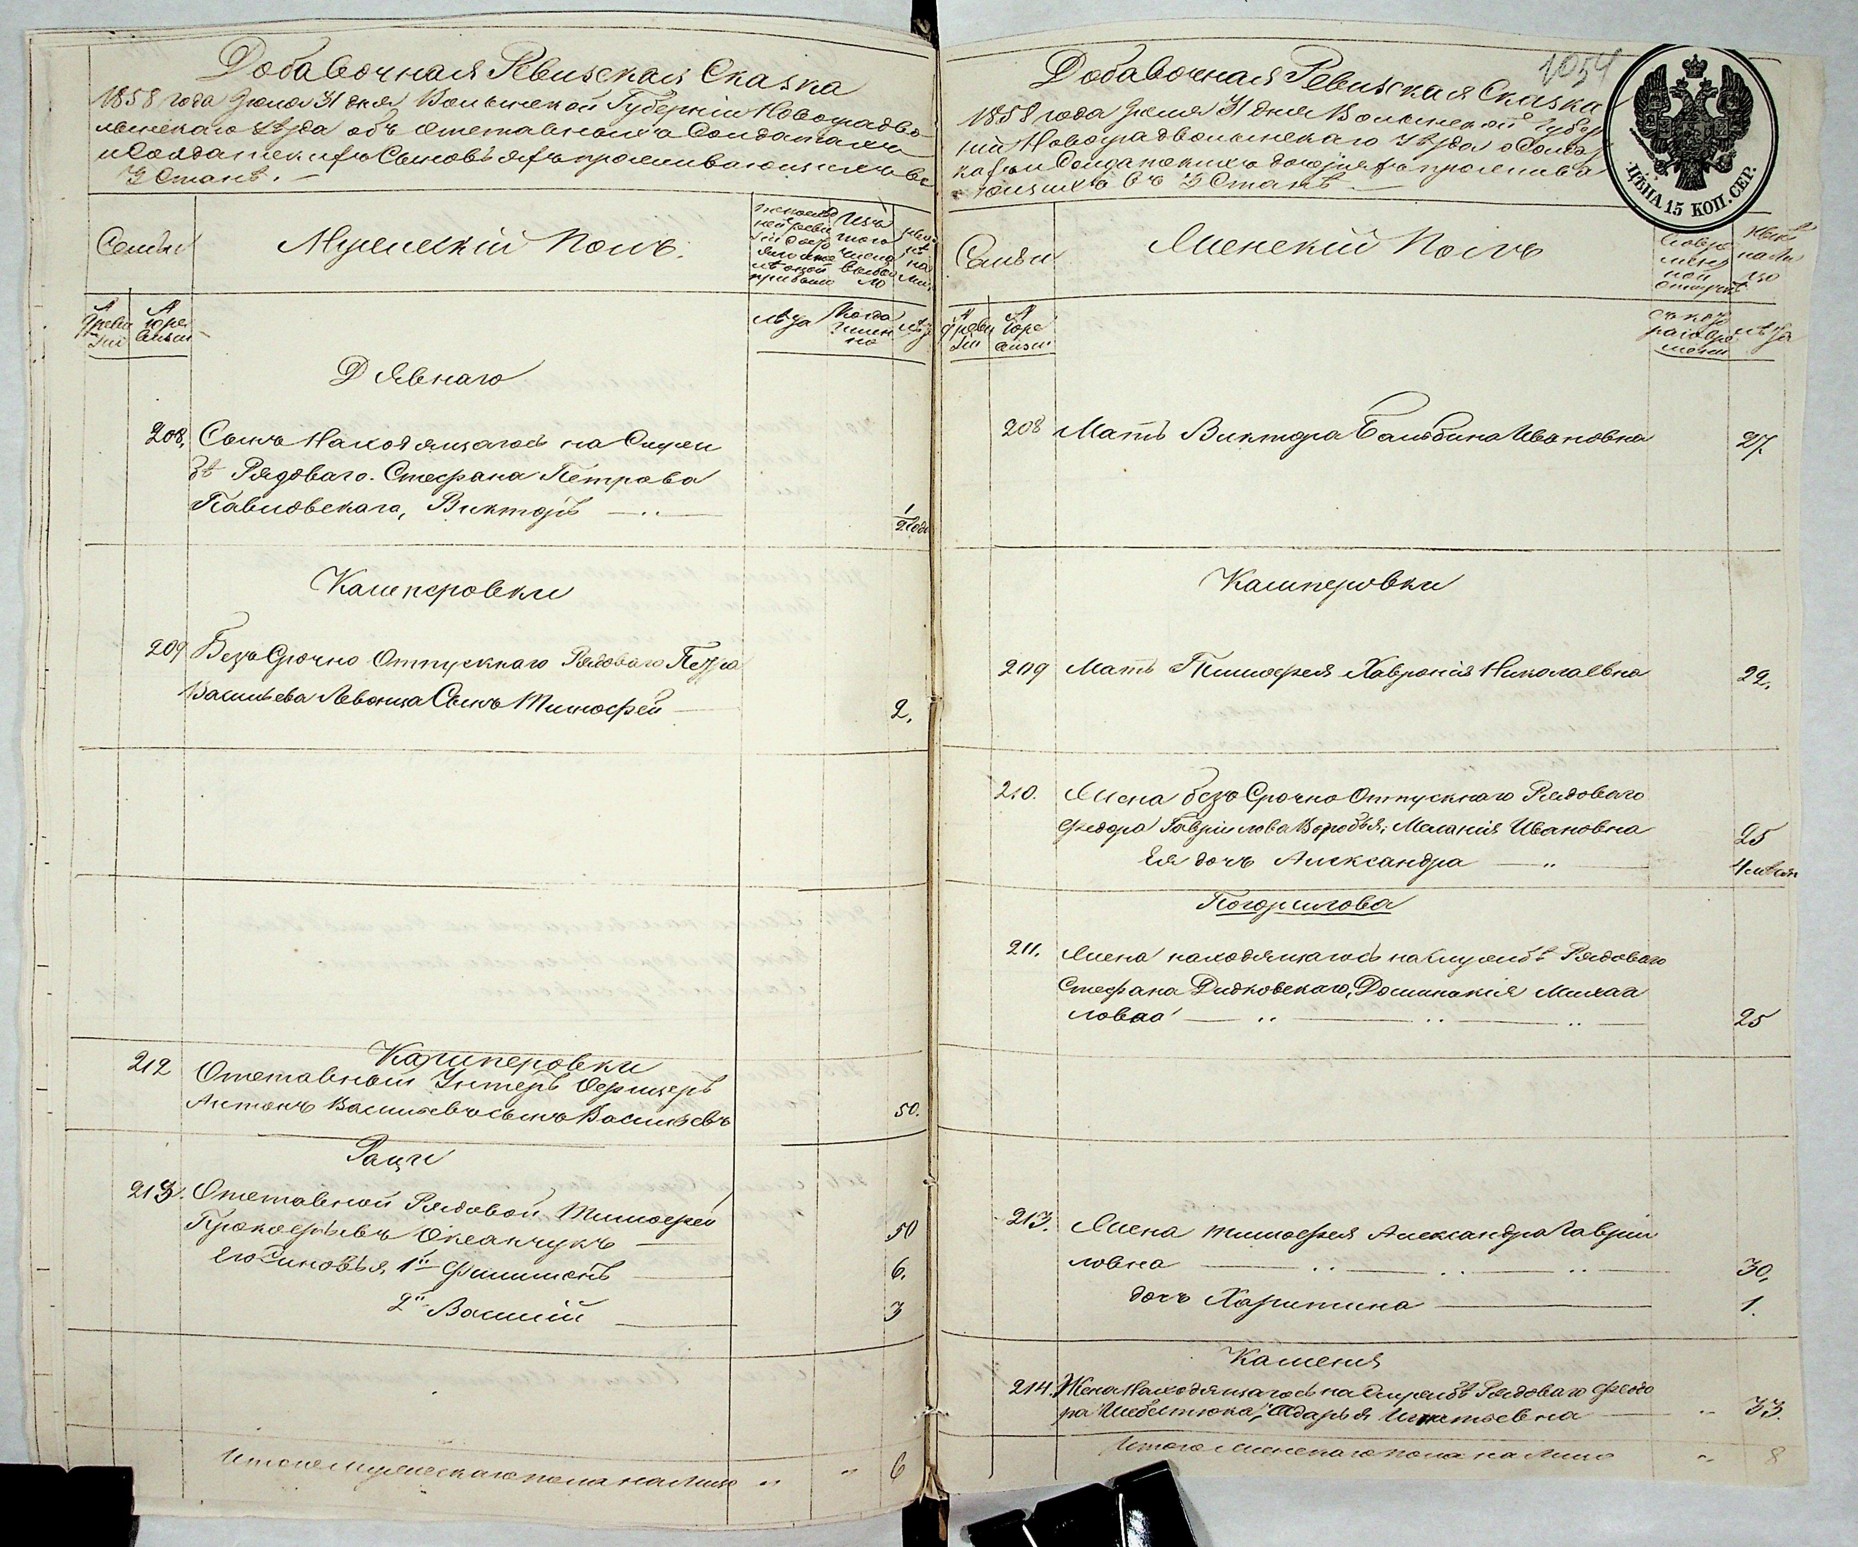 Добавочная Ревизская Сказка
1858 года Июля 31 дня Волынской Губернии Новоградво-
лынскаго Уезда объ отставныхъ Солдатахъ
и Солдатскихъ Сыновьяхъ проживающихъ во
3 Станѣ. —
Семьи
Мужескій Полъ.
Изъ
того
числа
выбы
ло
на
№
№
лѣта
Когда
имен
но
Дявнаго
208, Сынъ Находящагося на Служ
бѣ Рядоваго. Стефана Петрова
Павловскаго, Викторъ — ..— 1/2 года
Кашперовки
209 Безъ Срочно Отпускнаго Рядоваго Петра
Васильева Левонца Сынъ Тимофей — 2.
Кашперовки
212 Отставный Унтеръ Офицеръ
Антонъ Васильевъ сынъ Васильевъ 50.
Рачи
213. Отставной Рядовой Тимофей
Прокофьевъ Океанчукъ — 50
Его Сыновья, 1й Филимонъ — 6.
2й Василій — 3
Итого мужескаго пола на лицо " " 6
1054
Добавочная Ревизская Сказка
1858 года Июля 31 дня Волынской Губер
ніи Новоградволынскаго Уезда о Солдат
кахъ и Солдатскихъ дочеряхъ прожива
ющихъ въ 3 Станѣ —
ЦѢНА 15 КОП. СЕР.
Семьи
Женскій Полъ
Во вре
мен
ной
отлучкѣ
Нынѣ
на ли
цо
№
№
съ кот
раго вре
мени
лѣта
208 Мать Виктора Бальбина Ивановна 27.
Кашперовки
209 Мать Тимофея Хавронія Николаевна 22.
210. Жена безъ Срочно Отпускнаго Рядоваго
Федора Гаврилова Воробья, Меланія Ивановна 25
Ея дочь Александра — „ —
Погорилова
211. Жена находящагося на Службѣ Рядоваго
Стефана Дидковскаго, Доминикія Михай
ловна — .. — .. — .. — 25
213. Жена Тимофея Александра Гаврии
ловна — .. — .. — .. — 30,
дочь Харитина — 1.
Каменя
214. Жена Находящагося на Службѣ Рядоваго Федо
ра Шебелтюка, Одарья Игнатьевна — " 33.
Итого женскаго пола на лицо " 8